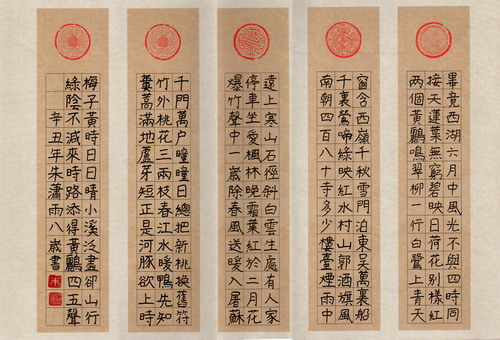 畢竟西湖六月中風光不與四時同
接天蓮葉無窮碧映日荷花別樣紅
两個黃鸝鳴翠柳一行白鷺上青天
窗含西嶺千秋雪門泊東吳萬裏船
千裏鶯啼綠映紅水村山郭酒旗風
南朝四百八十寺多少樓臺煙雨中
遠上寒山石徑斜白雲生處有人家
停車坐愛楓林晚霜葉紅於二月花
爆竹聲中一歲除春風送暖入屠蘇
千門萬户曈曈日總把新桃換舊符
竹外桃花三兩枝春江水暖鴨先知
蔞蒿滿地蘆芽短正是河豚欲上時
梅子黃時日日晴小溪泛盡卻山行
綠陰不減來時路添得黃鸝四五聲
辛丑年朱瀟雨八歲書